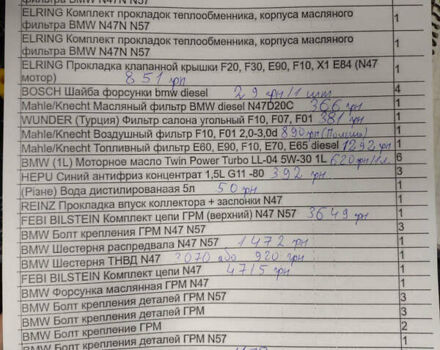 фильтра BMW N47N N57 1
ELRING Комплект прокладок теплообменника, корпуса масляного
фильтра BMW N47N N57 1
ELRING Комплект прокладок теплообменника, корпуса масляного
фильтра BMW N47N N57 1
ELRING Прокладка клапанной крышки F20, F30, E90, F10, X1 E84 (N47
мотор) 851 грн 1
BOSCH Шайба форсунки bmw diesel 29 грн/1 шт 4
Mahle/Knecht Масляный фильтр BMW diesel N47D20C 366 грн 1
WUNDER (Турция) Фильтр салона угольный F10, F07, F01 381 грн 1
Mahle/Knecht Воздушный фильтр F10, F01 2,0-3,0d 890 грн 1
Mahle/Knecht Топливный фильтр E60, E90, F10, E70, E65 diesel 1292 грн 1
BMW (1L) Моторное масло Twin Power Turbo LL-04 5W-30 1L 620 грн/1л 6
HEPU Синий антифриз концентрат 1,5L G11 -80 392 грн 3
(Різне) Вода дистилированаая 5л 50 грн 1
REINZ Прокладка впуск коллектора + заслонки N47 1
FEBI BILSTEIN Комплект цепи ГРМ (верхний) N47 N57 3649 грн 1
BMW Болт крепления ГРМ N47 N57 1
BMW Шестерня распредвала N47 N57 1472 грн 1
BMW Шестерня ТНВД N47 или 920 грн 1
FEBI BILSTEIN Комплект цепи N47 4715 грн 1
BMW Форсунка маслянная ГРМ N47 1
BMW Болт крепления деталей ГРМ N57 3
BMW Болт крепления деталей ГРМ N57 3
BMW Болт крепление ГРМ 2
BMW Болт крепления деталей ГРМ N57 3